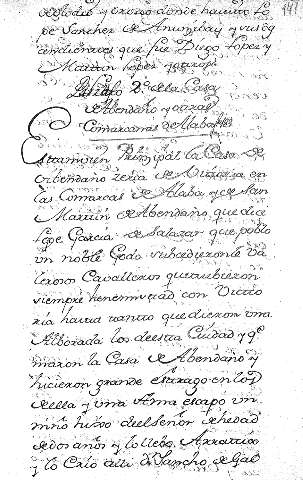 141
de Lodio y Orozco donde havito Lo
pe Sanchez de Anunibay y sus q.
Martin Lopez
Capitulo 2º de la Casa
de Abendaño y otras
Comarcanas de Alaba
Es tambien Principal la Casa de
Abendaño cerca de Vitoria en
las Comarcas de Alaba, y es de San
Martin de Abendaño, que dice
Lope Garcia de Salazar que poblo
un noble Godo subcedieronle Va
lerosos Cavalleros que tubieron
siempre henemistad con Victo
ria hasta tanto que dieron una
Alborada los de esta Ciudad y q.
maron la Casa de Abendaño y
hicieron grande estrago en los
de ella y una Ama escapo un
niño hijo del Señor de hedad
de dos años y lo llebo a Arratia
y lo Crio alli Dn Sancho de Gal